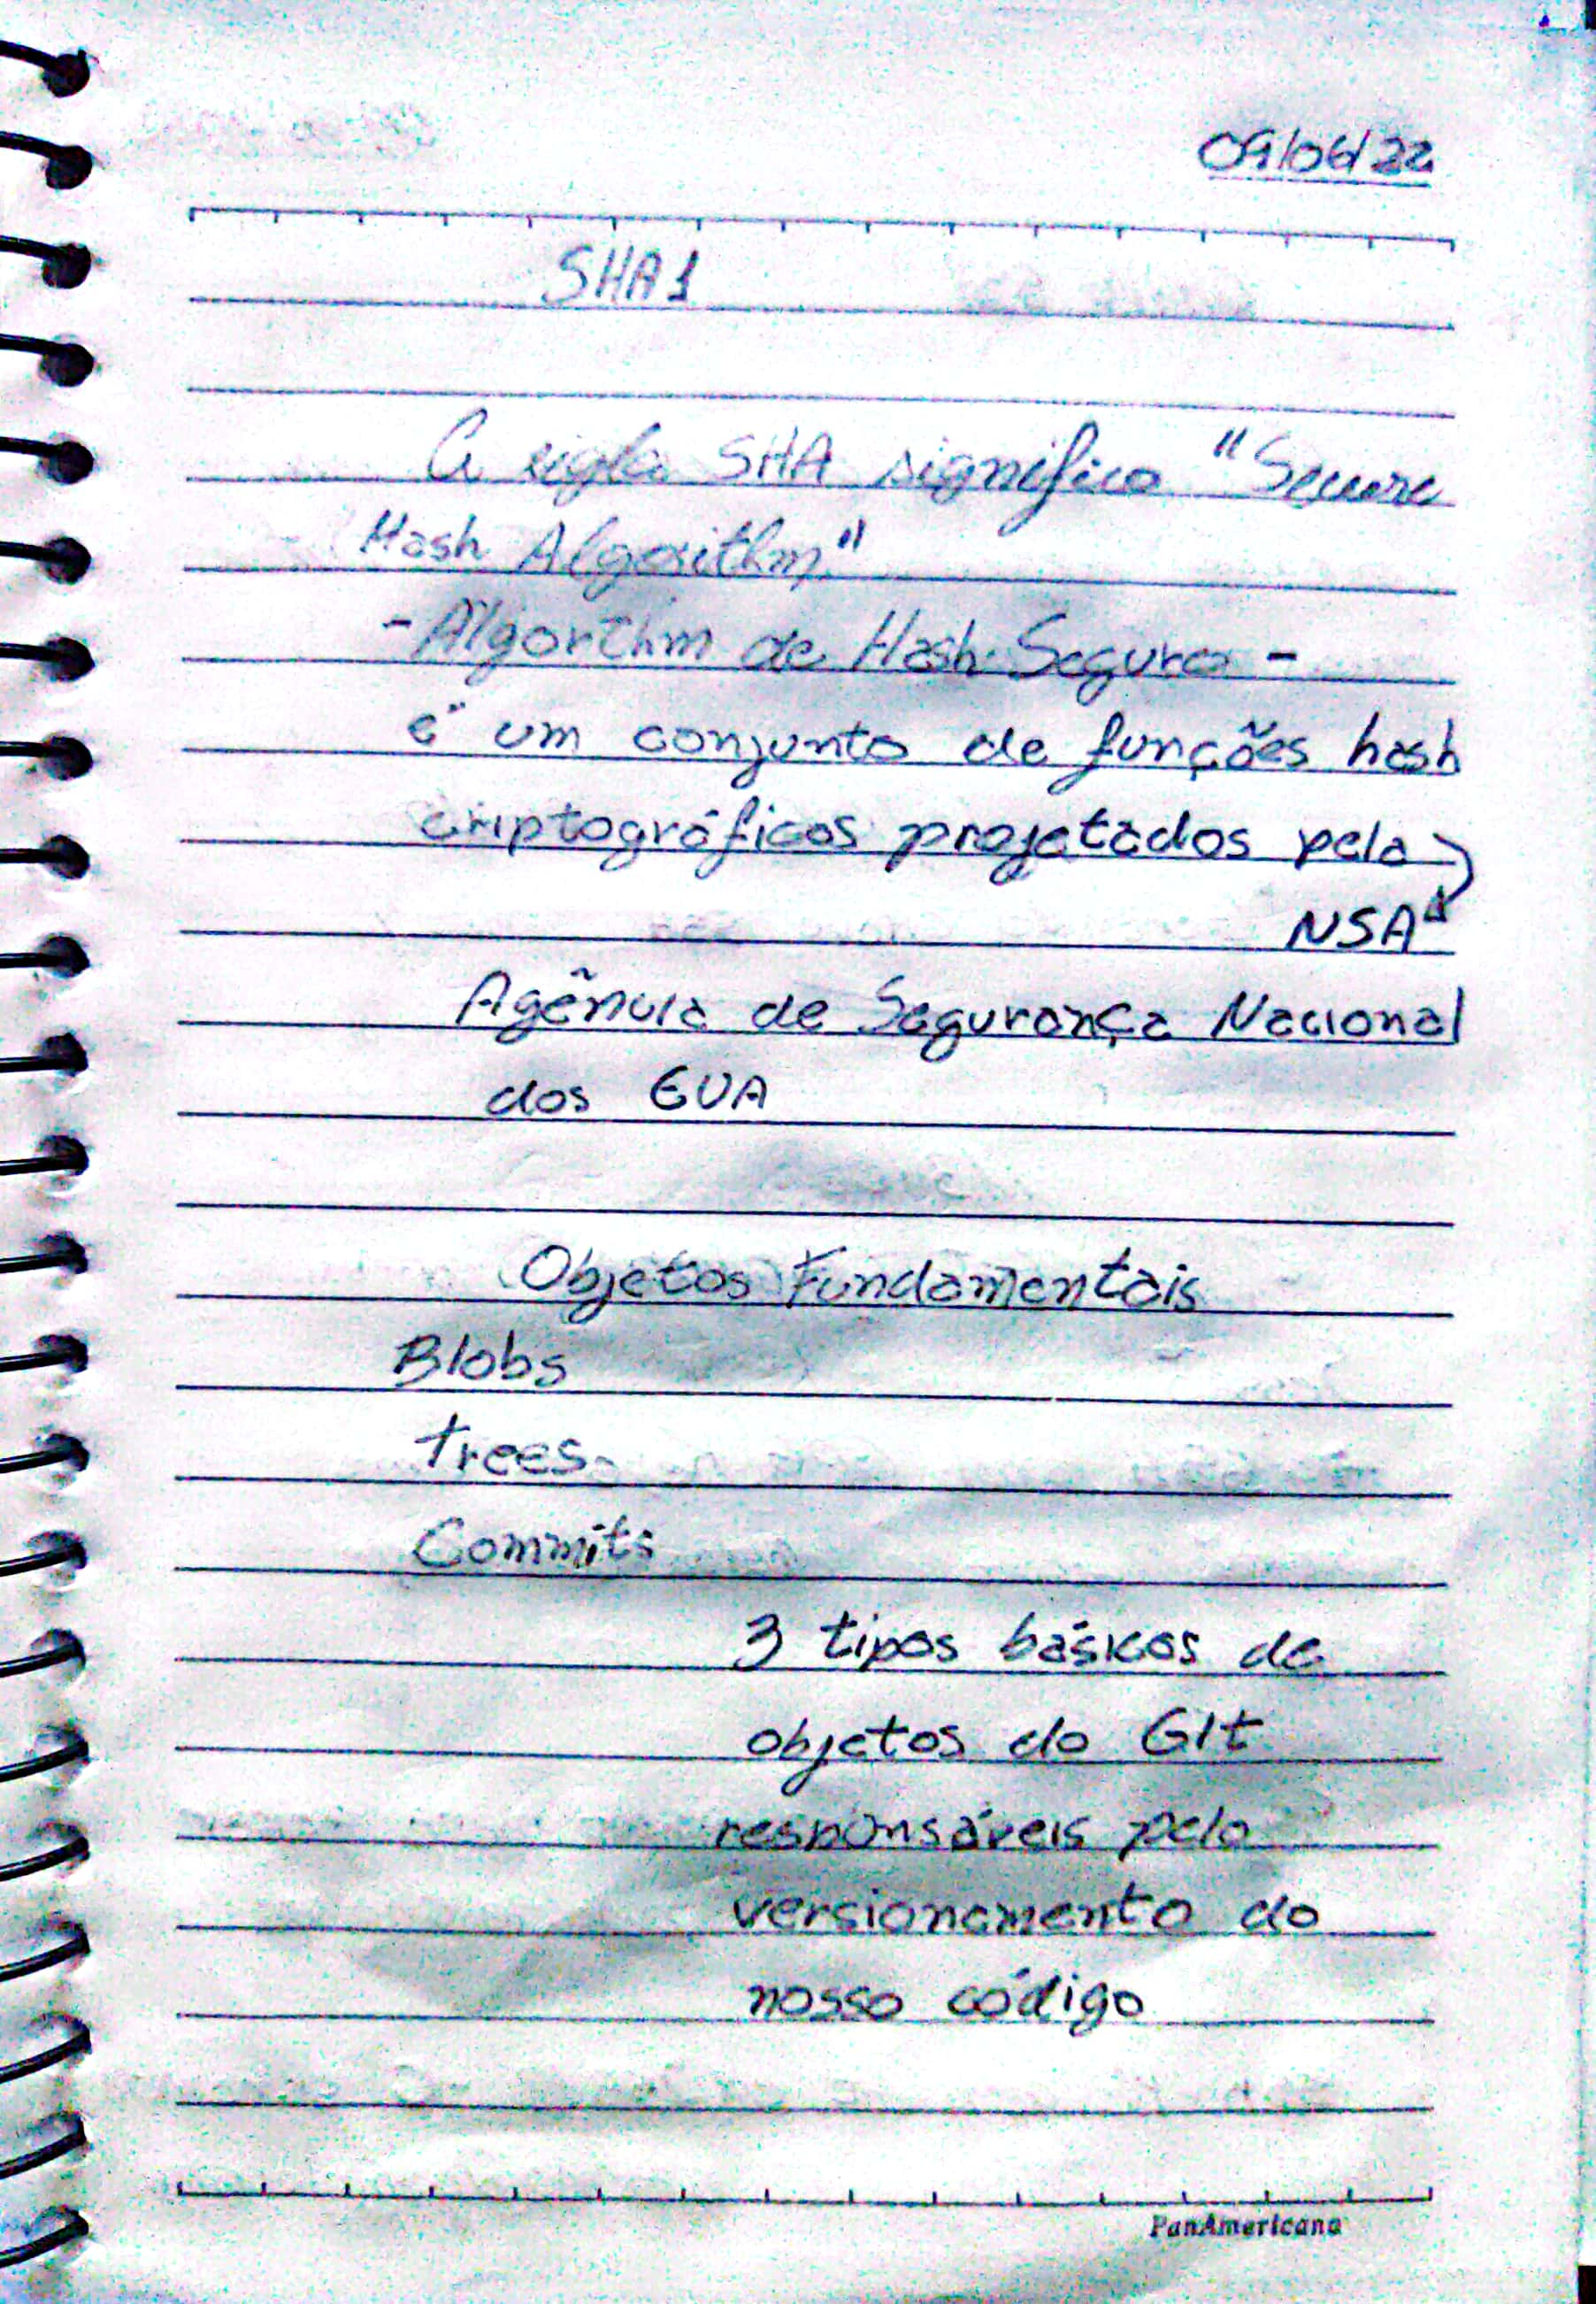 09/06/22
SHA1
A sigla SHA significa "Secure
Hash Algorithm"
- Algorthm de Hash Seguro -
é um conjunto de funções hash
criptográficos projetados pela
NSA
Agência de Segurança Nacional
dos EUA
Objetos Fundamentais
Blobs
Trees
Commits
3 tipos básicos de
objetos do Git
responsáveis pelo
versionamento do
nosso código
PanAmericana